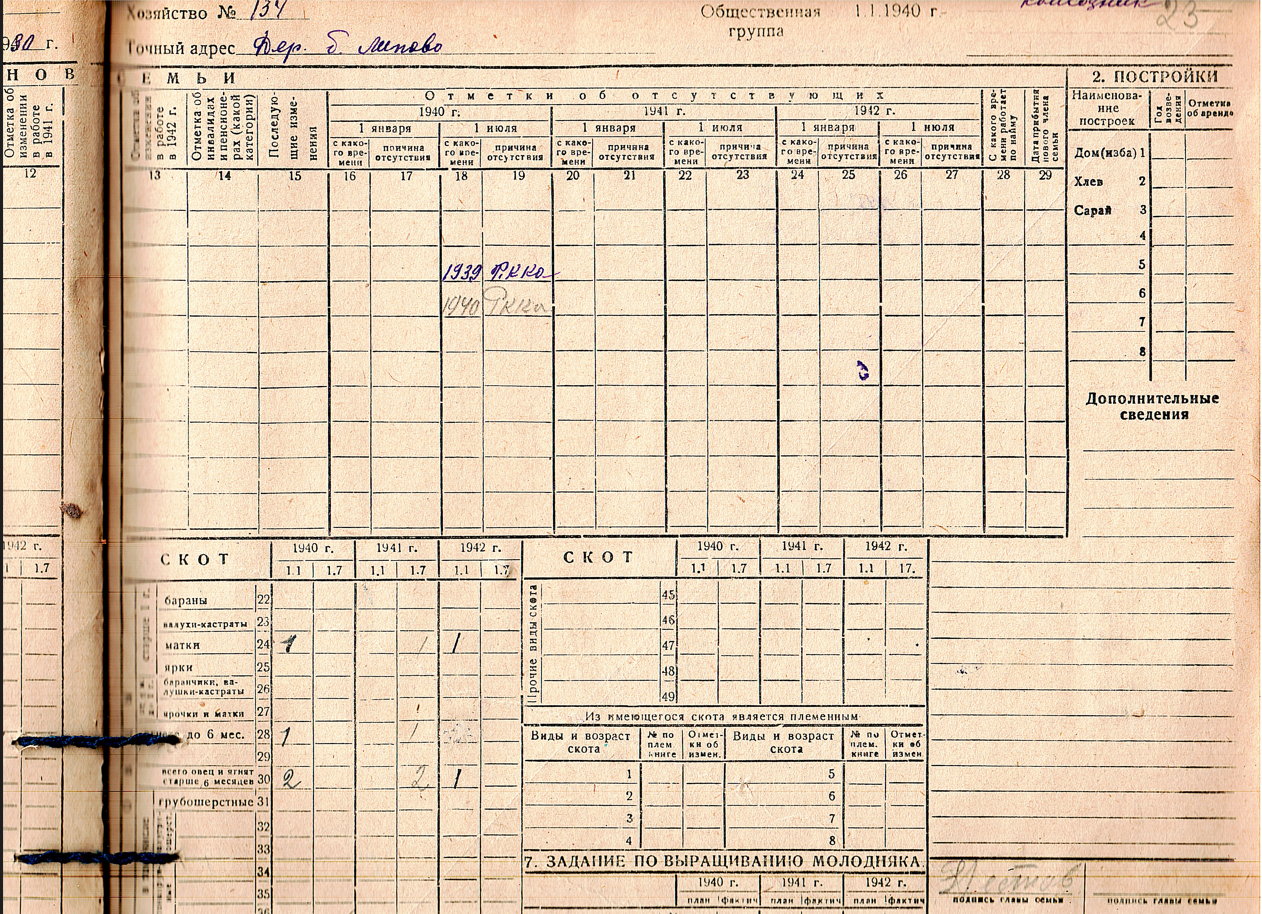 Хозяйство № 134
Общественная группа
1.1.1940 г.
колхозник
23
Точный адрес Дер. Б. Липово
НОВ
СЕМЬИ
2. ПОСТРОЙКИ
Отметка об изменении в работе в 1941 г.
в работе в 1942 г.
Отметка об инвалидах и пенсионерах (какой категории)
Последующие изменения
Отметки об отсутствующих
1940 г. 1941 г. 1942 г.
1 января 1 июля 1 января 1 июля 1 января 1 июля
с какого времени причина отсутствия с какого времени причина отсутствия с какого времени причина отсутствия с какого времени причина отсутствия с какого времени причина отсутствия с какого времени причина отсутствия
С какого времени работает по найму
Дата прибытия нового члена семьи
Наименование построек
Год возведения
Отметка об аренде
12 13 14 15 16 17 18 19 20 21 22 23 24 25 26 27 28 29
Дом(изба) 1
Хлев 2
Сарай 3
4
5
6
7
8
1939 РККА
1940 РККА
Дополнительные сведения
1942 г.
1.7
СКОТ 1940 г. 1941 г. 1942 г.
1.1 1.7 1.1 1.7 1.1 1.7
бараны 22
валухи-кастраты 23
матки 24 1 1 1
ярки 25
баранчики, валушки-кастраты 26
ярочки и матки 27
до 6 мес. 28 1 1
29
всего овец и ягнят старше 6 месяцев 30 2 2 1
грубошерстные 31
32
33
34
35
36
СКОТ 1940 г. 1941 г. 1942 г.
1.1 1.7 1.1 1.7 1.1 17.
Прочие виды скота
45
46
47
48
49
Из имеющегося скота является племенным
Виды и возраст скота № по плем книге Отметки об измен. Виды и возраст скота № по плем. книге Отметки об измен
1 5
2 6
3 7
4 8
7. ЗАДАНИЕ ПО ВЫРАЩИВАНИЮ МОЛОДНЯКА.
1940 г. 1941 г. 1942 г.
план фактич план фактич план фактич
подпись главы семьи подпись главы семьи